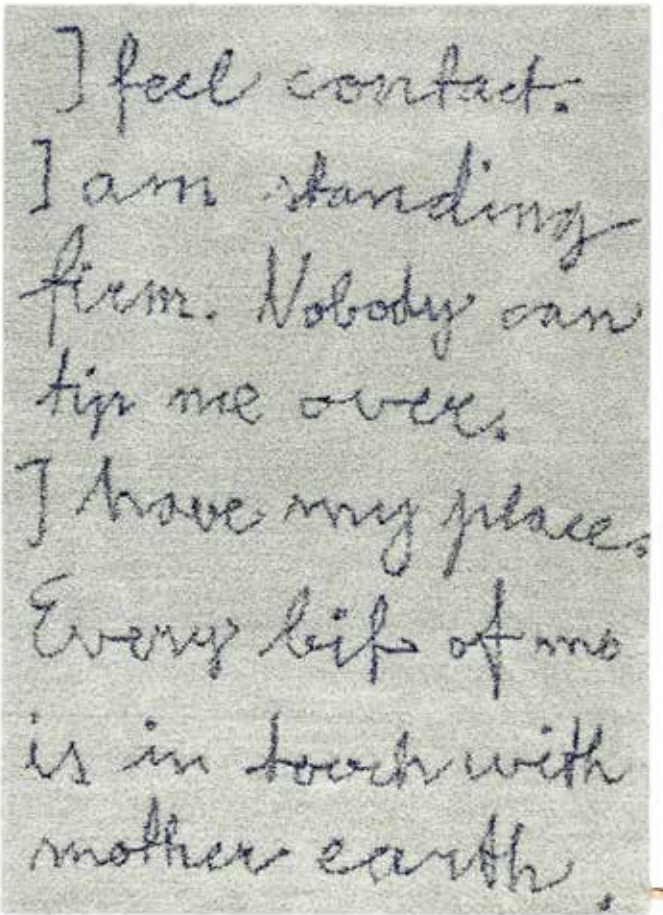 I feel contact.
I am standing
firm. Nobody can
tip me over.
I have my place.
Every bit of me
is in touch with
mother earth.